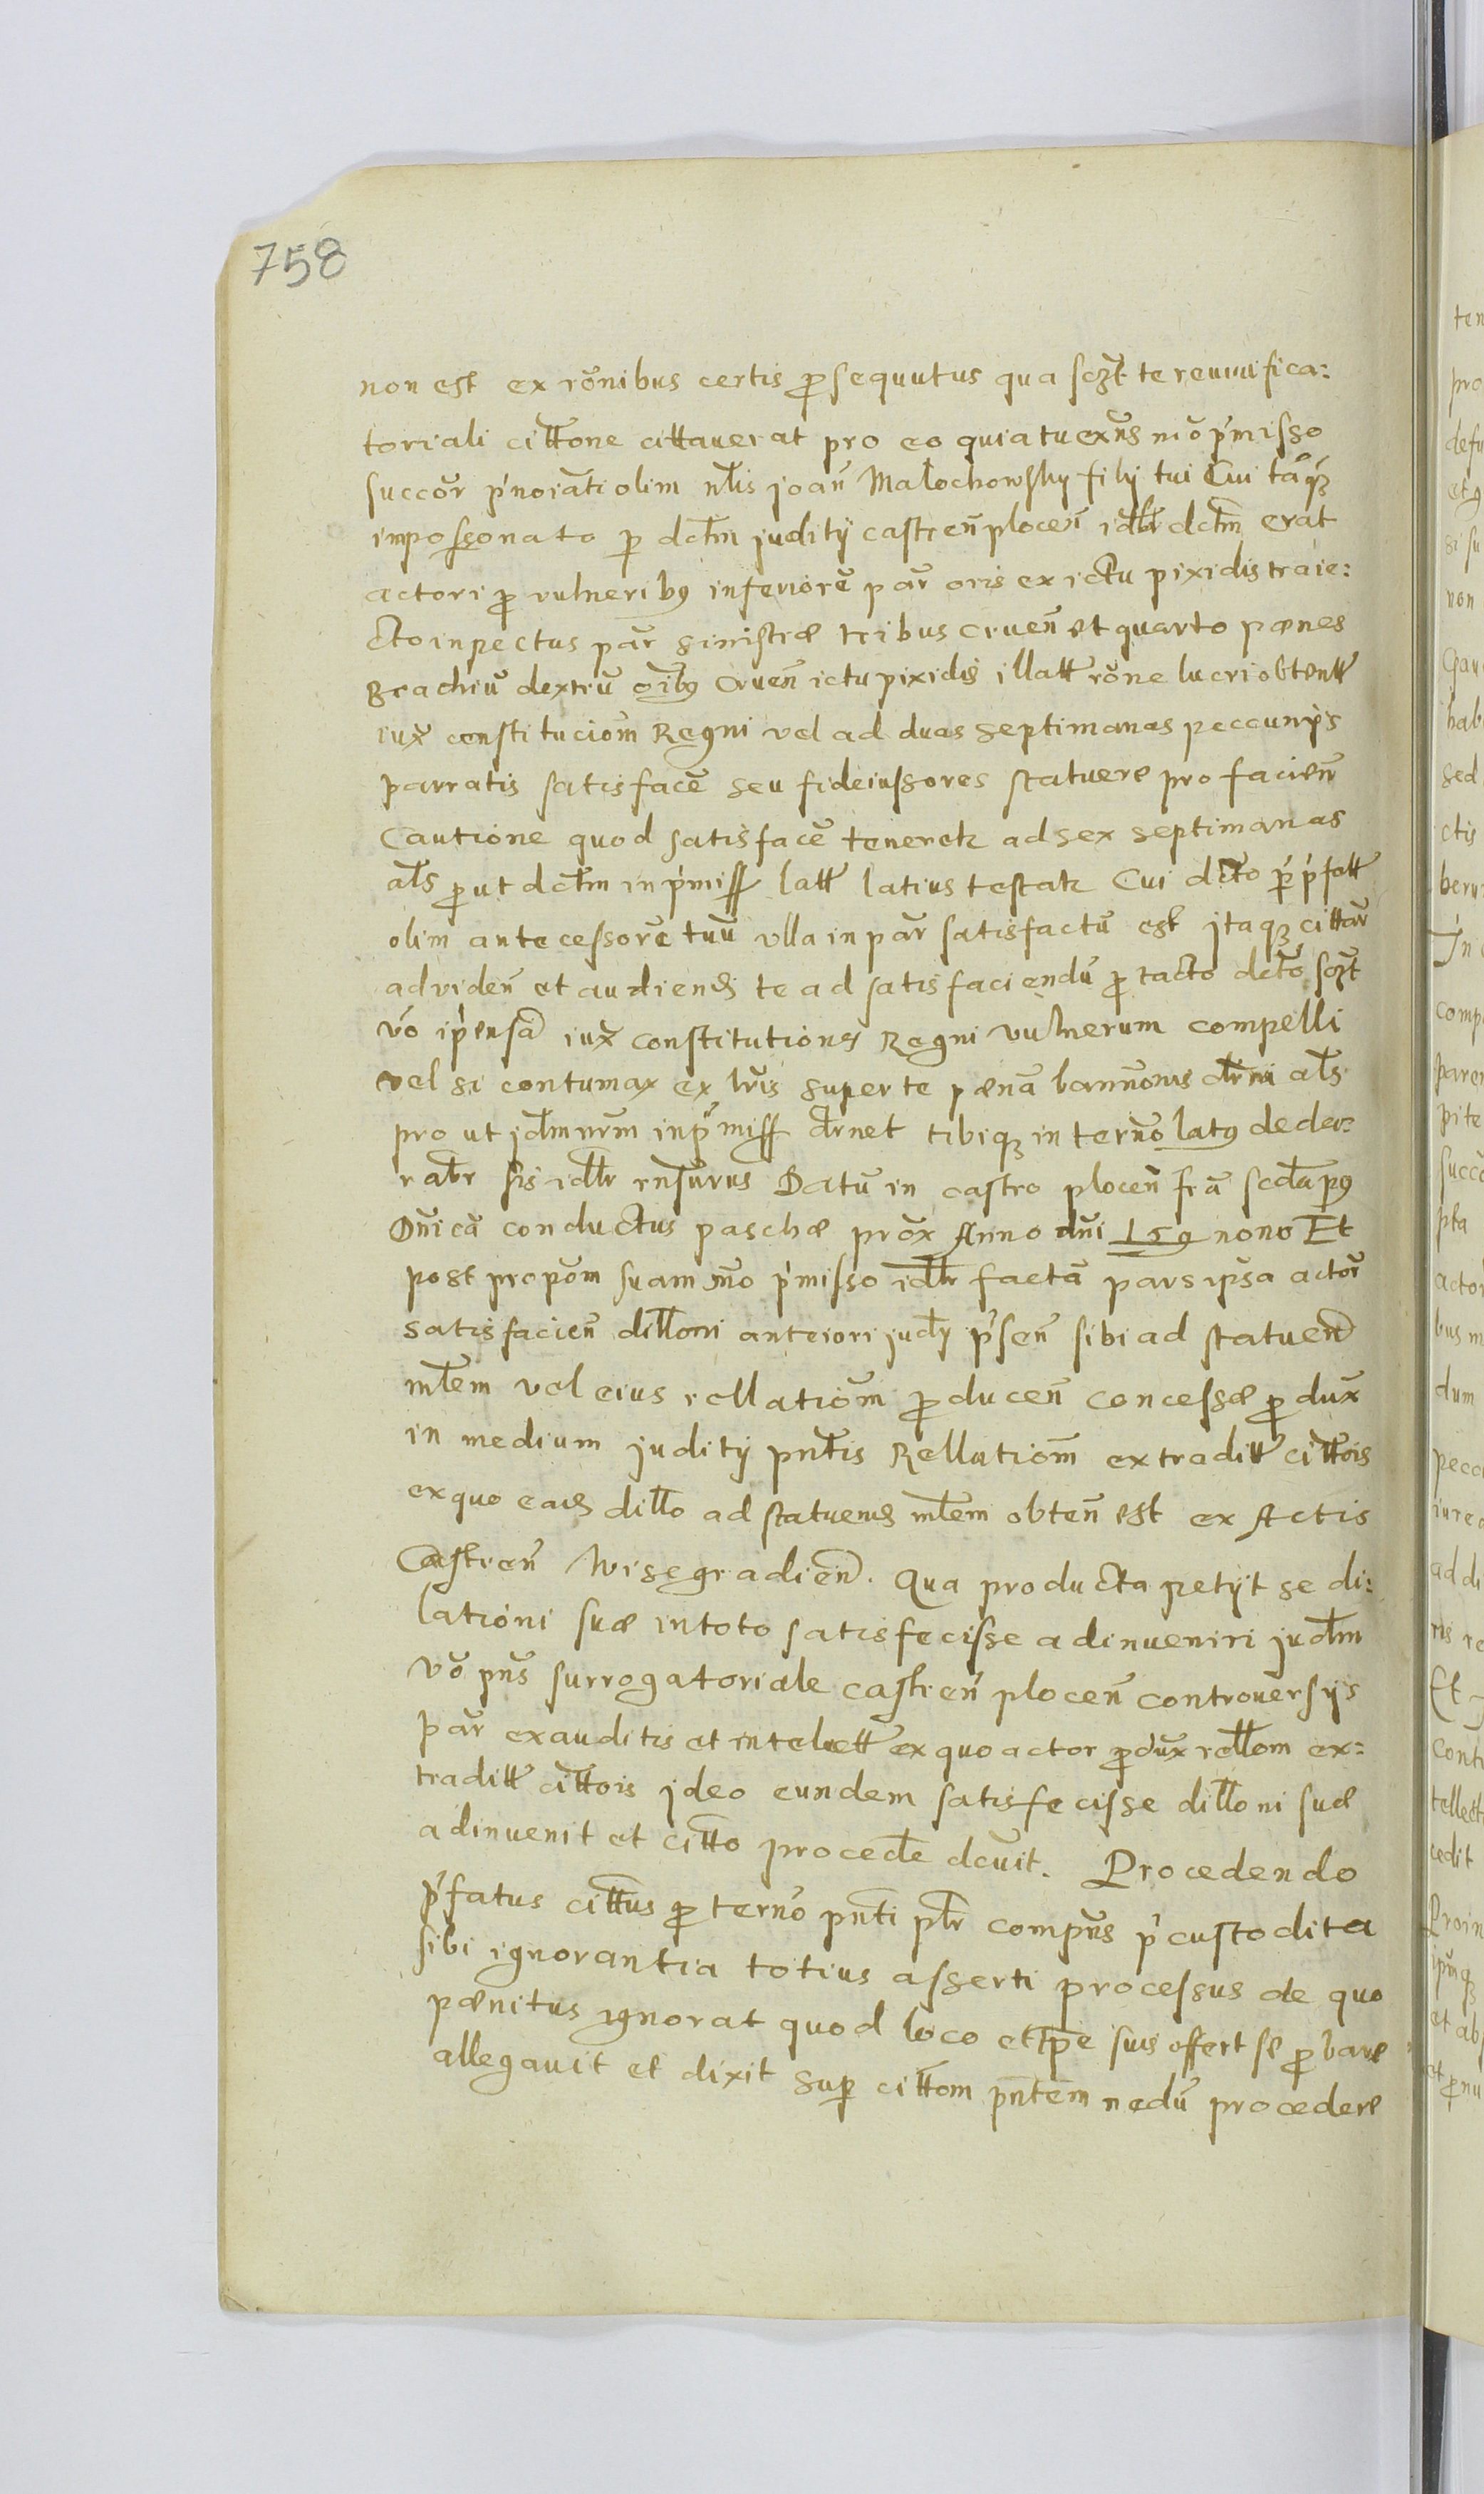 758
non est ex rōnibus certis prosequutus qua sczt te reuiuifica:
toriali cittone cittauerat pro eo quia tu exn̄s mō pr̄misso
succōr pr̄noiāti olim nlis joan̄ Małochowsky filij tui Cui tāq̨
impossonato p dctm judity castren̄ plocen̄ idlr dctm erat
actori pro vulneribus inferiorē pār oris ex ictu pixidis traie:
cto in pectus pār sinistræ tribus cruen̄ et quarto pænes
Brachiū dextrū oībus cruen̄ ictu pixidis illatt rōne lucri obtentt
iux̄ constituciom̄ Regni vel ad duas septimanas peccunijs
parratis satisfacē seu fideiussores statuere pro facien̄
Cautione quod satisfacē teneretr ad sex septimanas
als prout dctm in pr̄miss latt latius testatr Cui dcto p pr̄fatt
olim antecessorē tuū ulla in pār satisfactū est jtaq̨ cittār
ad viden̄ et audiend te ad satisfaciendū pro tacto dcto sczt
vo ipensā iux̄ constitutiones Regni vulnerum compelli
vel si contumax ex lris super te pænā bannonis dcrni als
pro ut jdm nrm in pr̄miss dcrnet tibiq̨ in ternō latus decla:
rabr sis idlr rnsurus Datū in castro plocen̄ frā scda pus
Dn̄icā conductus paschæ prōx Anno dn̄i 159 nono Et
post propōm suam mō pr̄misso idlr factā pars ip̄sa actōr
satisfacien̄ dilloni anteriori judy pr̄sen̄ sibi ad statuen̄
mlem vel eius rellatiōm producen̄ concessæ produx̄
in medium judity pntis Rellatiom̄ extraditt cittois
ex quo eaid dillo ad statuend mlem obten̄ est ex Actis
Castren̄ Wisegradien̄. Qua producta petijt se di:
lationi suæ in toto satisfecisse adinueniri judm
vō pn̄s surrogatoriale castren̄ plocen̄ controuersijs
pār exauditis et intelectt ex quo actor produx̄ rellom ex:
traditt cittois jdeo eundem satisfecisse dilloni suæ
adinuenit et citto procedē dcuit. Procedendo
pr̄fatus cittus pro ternō pnti ptr compn̄s pr̄custodita
sibi ignorantia totius asserti processus de quo
pænitus ignorat quod loco et tpe suis offert se probare
allegauit et dixit sup cittom pntem nedū procedere